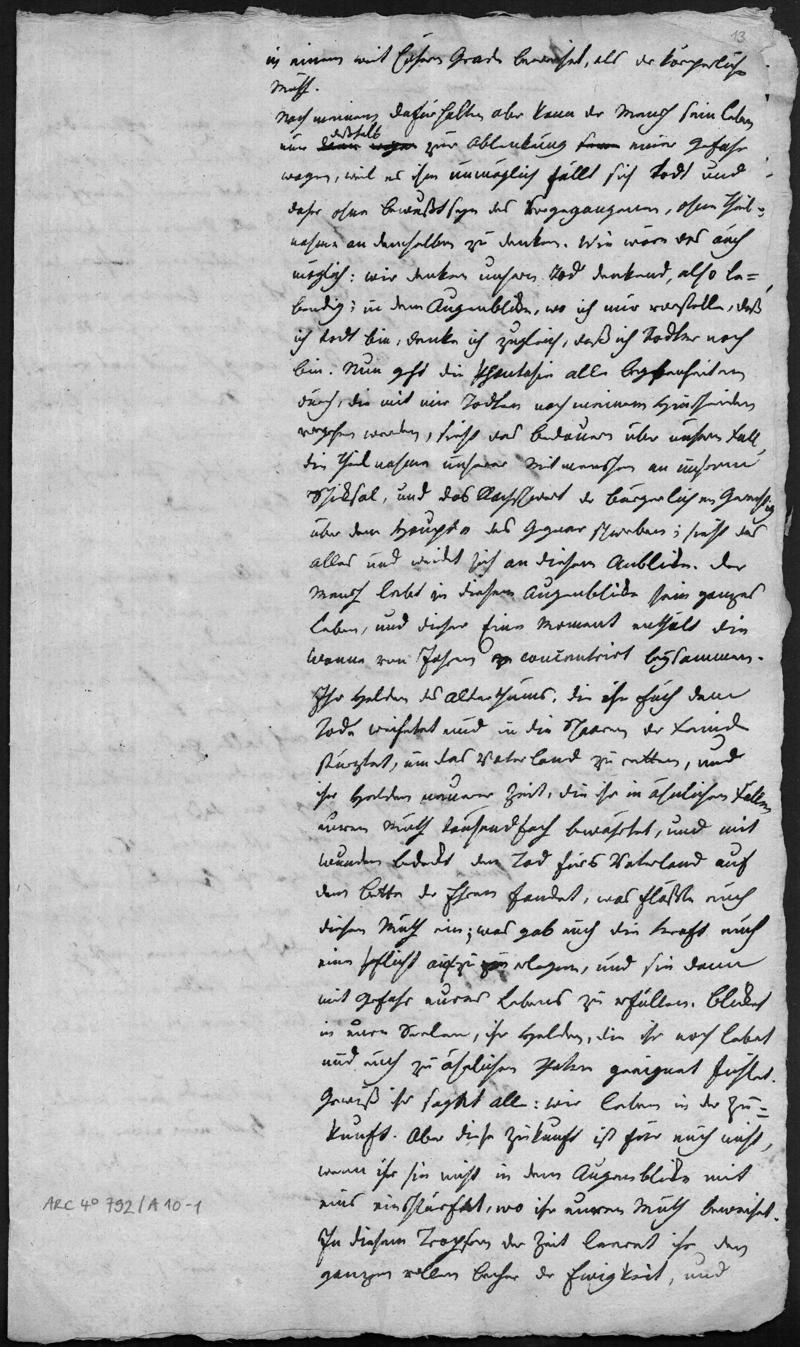 13
in einem weit höhern Grade beweiset, als der körperliche
Muth.
Nach meinem Dafürhalten aber kann der Mensch sein Leben
deßhalb
nur zur Ablenkung einer Gefahr
wagen, weil es ihm unmöglich fällt sich todt und
daher ohne Bewußtseyn des Vorgegangenen, ohne Theil-
nahme an demselben zu denken. Wie wäre das auch
möglich: wir denken unsern Tod denkend, also le-
bendig; in dem Augenblicke, wo ich mir vorstelle, daß
ich todt bin, denke ich zugleich, daß ich Todter noch
bin. Nun geht die Phantasie alle Begebenheiten
durch, die mit mir Todten nach meinem Hinscheiden
vorgehen werden, sieht das Bedauern über unsern Fall,
die Theilnahme unserer Mitmenschen an unserm
Schiksal, und das Rachschwert der bürgerlichen
über dem Haupte des Gegner schweben; sieht das
alles und weidet sich an diesem Anblicke. Der
Mensch lebt in diesem Augenblicke sein ganzes
Leben, und dieser Eine Moment enthält die
Wonne von Jahren concentrirt beysammen.
Ihr Helden des Alterthums, die ihr euch dem
Tode weihetet und in die Schaaren der Feinde
stürztet, um das Vaterland zu retten, und
ihr Helden neuerer Zeit, die ihr in ähnlichen Fällen
euren Muth tausendfach bewährtet, und mit
Wunden bedeckt den Tod fürs Vaterland auf
dem Bette der Ehren fandet, was flößte euch
diesen Muth ein; was gab euch die Kraft euch
eine Pflicht aufzuerlegen, und sie dann
mit Gefahr eures Lebens zu erfüllen. Blicket
in eure Seelen, ihr Helden, die ihr noch lebet
und euch zu ähnlichen Thaten geeignet fühlet.
Gewiß ihr saget alle: wir leben in der Zu-
kunft. Aber diese Zukunft ist für euch nicht,
wenn ihr sie nicht in dem Augenblicke mit
eins einschlürfet, wo ihr euren Muth beweiset.
In diesem Tropfen der Zeit leeret ihr den
ganzen vollen Becher der Ewigkeit, und
ARC 4° 792/A 10-1